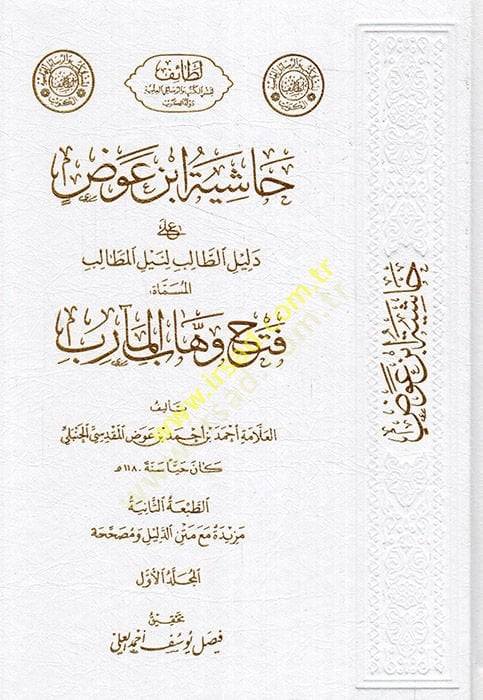 لطائف
لنشر الكتب والرسائل العلمية
دولة الكويت
حاشية ابن عوض
على
دليل الطالب لنيل المطالب
المسماة
فتح وهاب المآرب
تأليف
العلامة أحمد بن أحمد بن عوض المقدسي الحنبلي
كان حيا سنة ١١٨٠هـ
الطبعة الثانية
مزيدة مع متن الدليل ومصححة
المجلد الأول
تحقيق
فيصل يوسف أحمد العلي
حاشية ابن عوض
www.irsad.com.tr